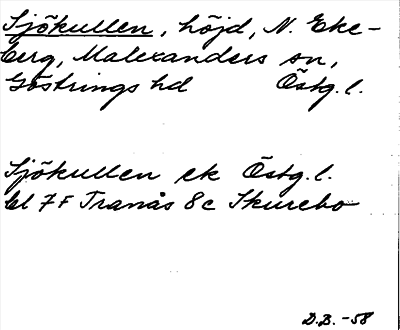 Sjökullen, höjd, N. Eke-
berg, Malexanders sn,
Göstrings hd Östg. l.
Sjökullen ek Östg. l.
bl 7F Tranås 8c Skurebo
D.B. -58